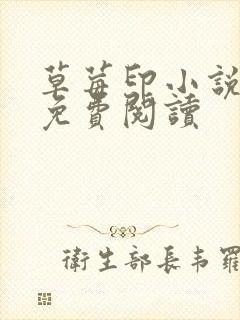 草莓印小說
免費閱讀
衛生部長韦羅